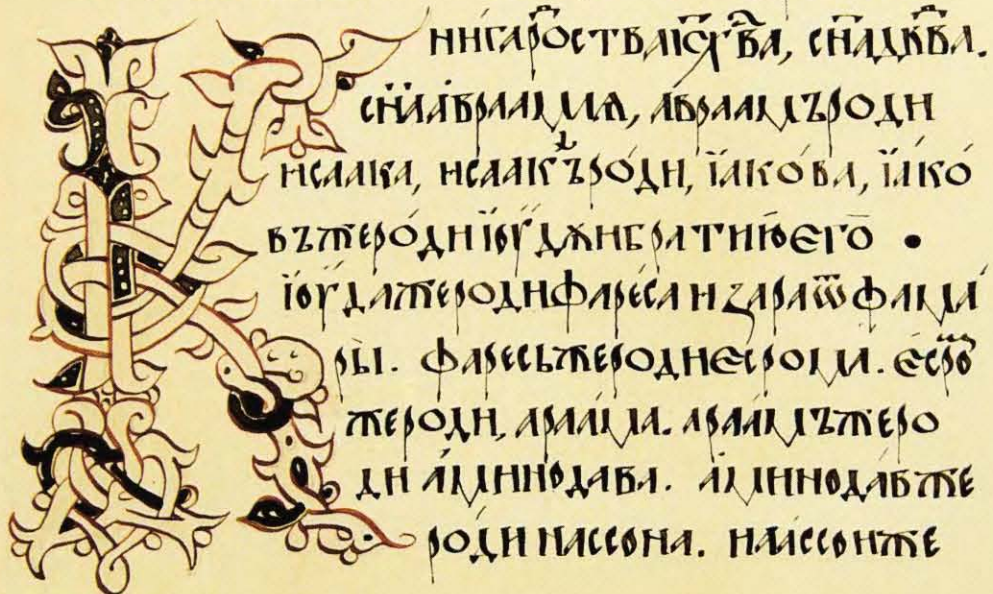 Книгар̑оства іс҃ х҃ва, сн҃а дв҃два.
сн҃а авраамлѧ, авраамъроди
исаака, исаакъроди, їакова, їако
въжероди їоудѫибратиюего •
їоудажеродифаресаизараѿфама
ры. фаресьжеродиесрома. есро
жероди, араама. араамъжеро
ди аминодава. аминодавже
роди нассона. наассонже